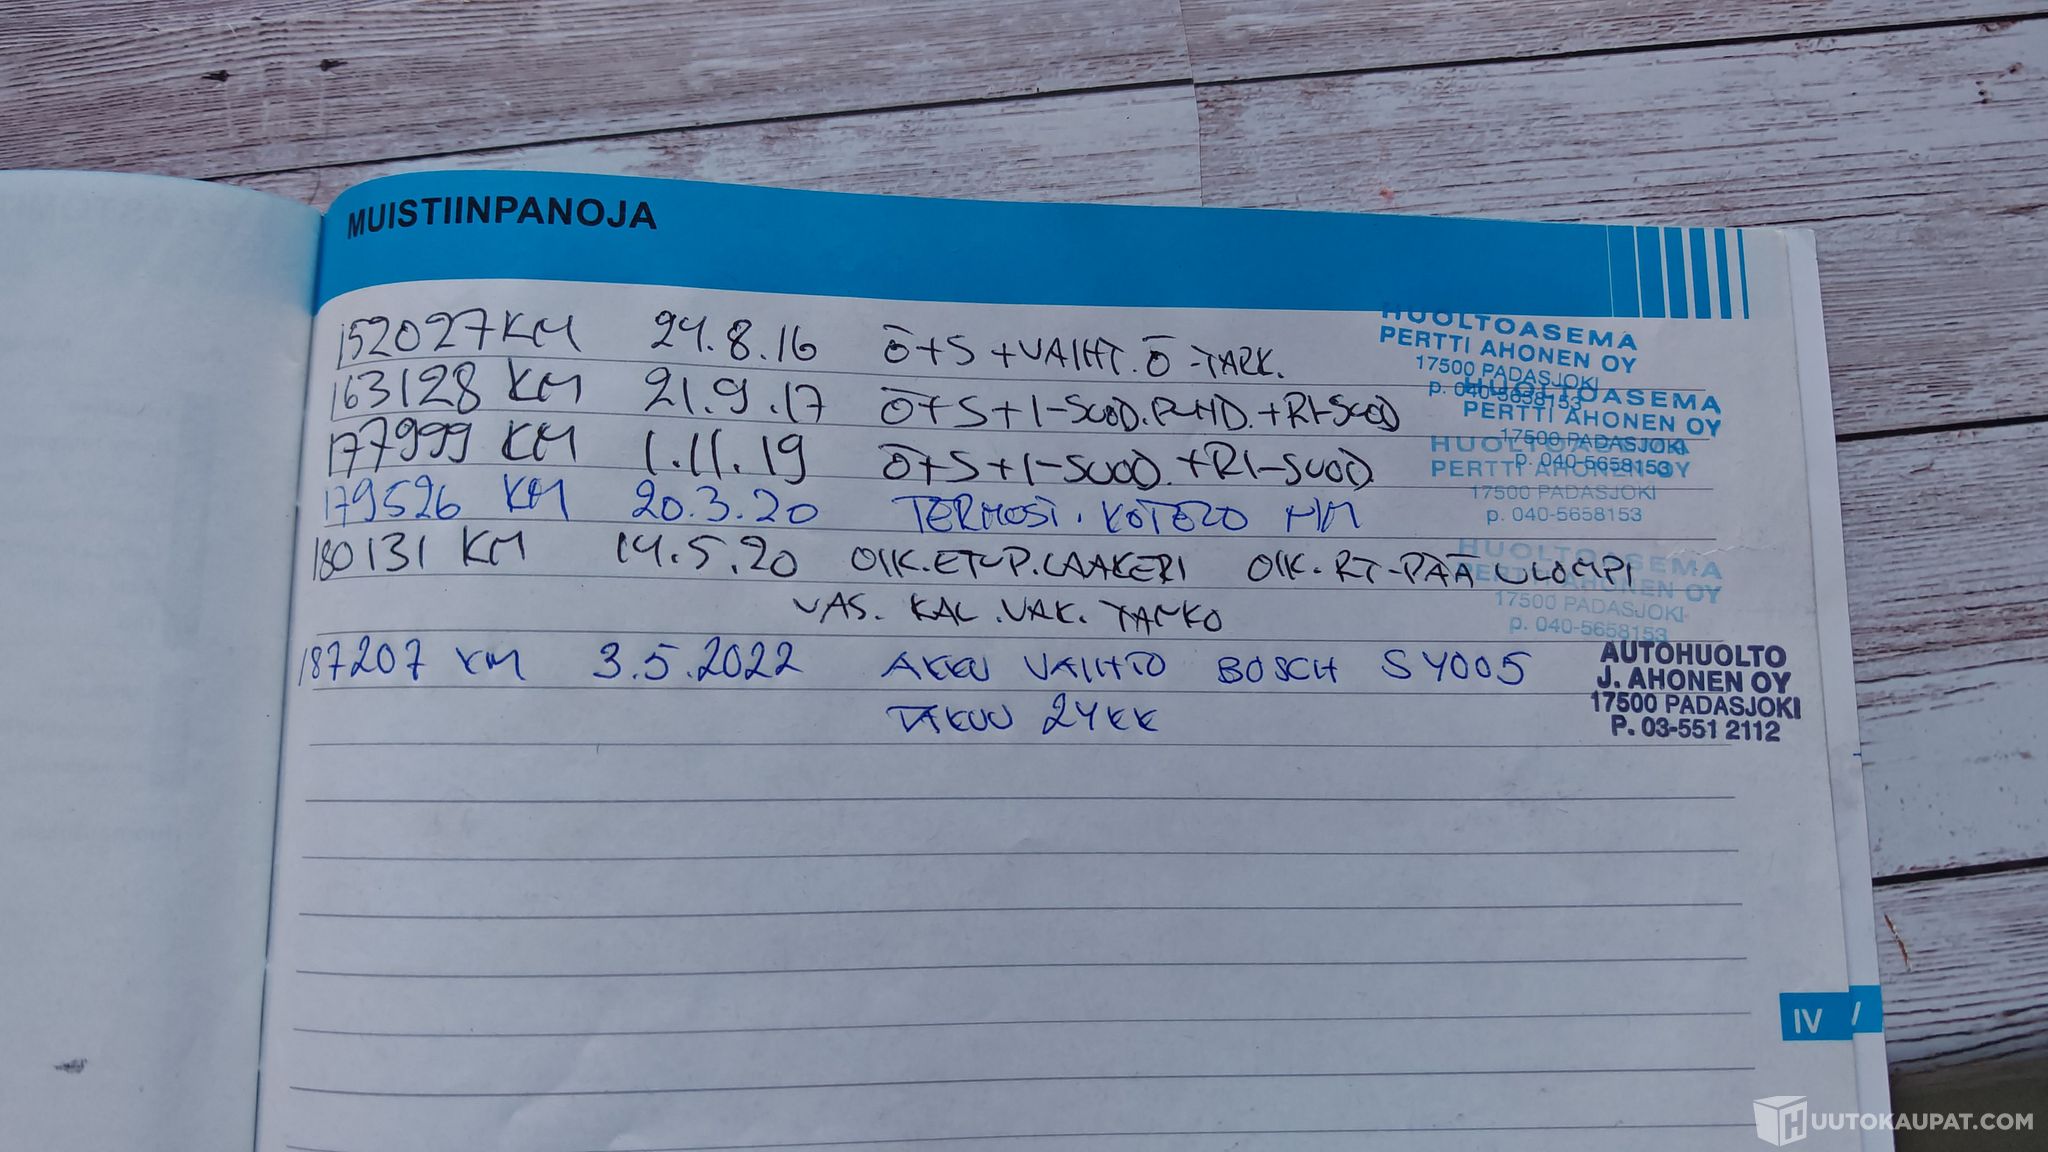 MUISTIINPANOJA
152027 KM 24.8.16 Ö+S+VAIHT.Ö-TARK.
HUOLTOASEMA
PERTTI AHONEN OY
17500 PADASJOKI
p. 040-5658153
163128 KM 21.9.17 Ö+S+I-SUOD.PUHD.+RI-SUOD
HUOLTOASEMA
PERTTI AHONEN OY
17500 PADASJOKI
p. 040-5658153
177999 KM 1.11.19 Ö+S+I-SUOD.+RI-SUOD
HUOLTOASEMA
PERTTI AHONEN OY
17500 PADASJOKI
p. 040-5658153
179526 KM 20.3.20 TERMOST. KOTELO
180131 KM 14.5.20 OIK.ETUP.LAAKERI OIK. RT-PÄÄ ULOMPI
HUOLTOASEMA
PERTTI AHONEN OY
17500 PADASJOKI
p. 040-5658153
VAS. KAL.VAK. TANKO
187207 KM 3.5.2022 AKKU VAIHTO BOSCH S4005
TAKUU 24KK
AUTOHUOLTO
J. AHONEN OY
17500 PADASJOKI
P. 03-551 2112
IV
HUUTOKAUPAT.COM